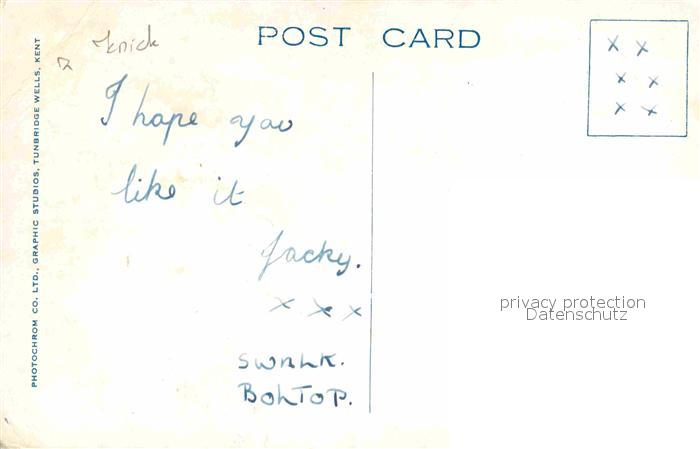 POST CARD
Knick
x x
x x
x x
I hope you
like it
Jacky.
x x x
SWALK.
BOLTOP.
PHOTOCHROM CO. LTD., GRAPHIC STUDIOS, TUNBRIDGE WELLS, KENT
privacy protection
Datenschutz